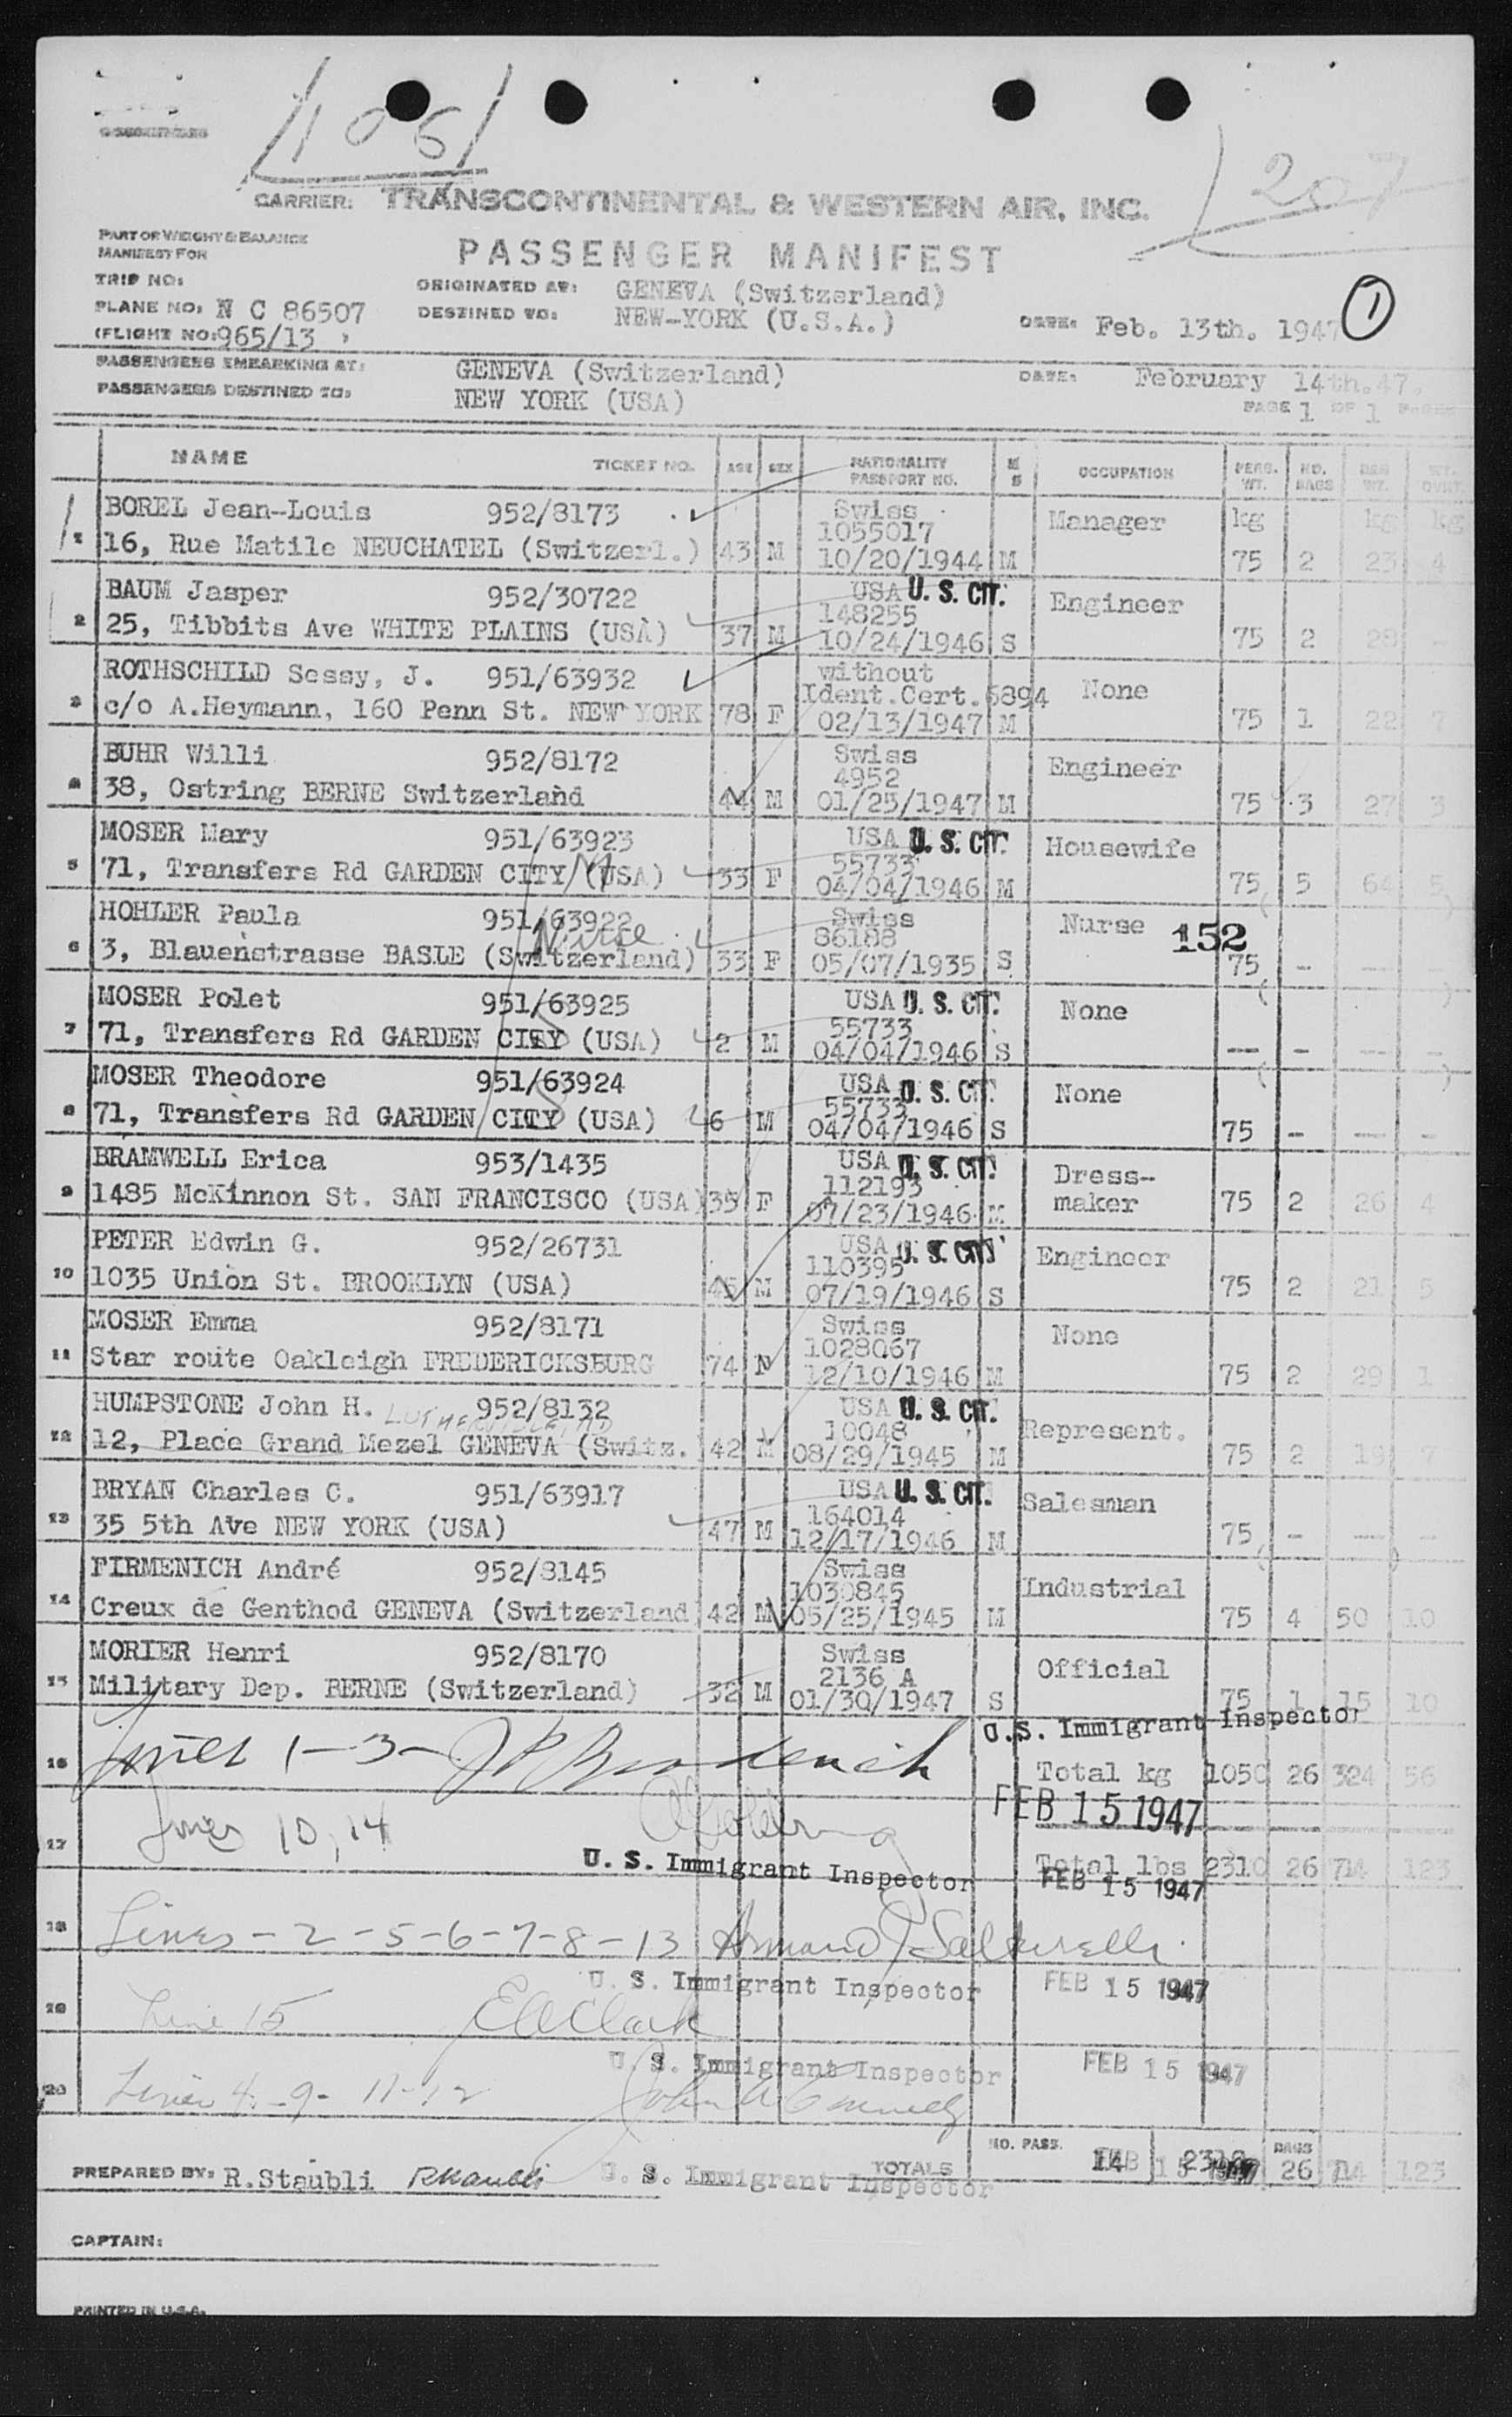 1061
207
CARRIER: TRANSCONTINENTAL & WESTERN AIR, INC.
PART OF WEIGHT & BALANCE
MANIFEST FOR
PASSENGER MANIFEST
TRIP NO:
ORIGINATED AT: GENEVA (Switzerland)
PLANE NO: N C 86507
DESTINED TO: NEW-YORK (U.S.A.)
DATE: Feb. 13th. 1947
1
(FLIGHT NO: 965/13
PASSENGERS EMBARKING AT: GENEVA (Switzerland)
DATE: February 14th.47.
PASSENGERS DESTINED TO: NEW YORK (USA)
PAGE 1 OF 1 PAGES
NAME TICKET NO. AGE SEX NATIONALITY PASSPORT NO. M S OCCUPATION PERS. WT. NO. BAGS BAG WT.
BOREL Jean-Louis 952/8173 Swiss Manager kg kg kg
1055017
1 16, Rue Matile NEUCHATEL (Switzerl.) 43 M 10/20/1944 M 75 2 23 4
BAUM Jasper 952/30722 USA U. S. CIT. Engineer
148255
2 25, Tibbits Ave WHITE PLAINS (USA) 37 M 10/24/1946 S 75 2 28 -
ROTHSCHILD Sessy, J. 951/63932 without None
Ident.Cert.5894
3 c/o A.Heymann, 160 Penn St. NEW YORK 78 F 02/13/1947 M 75 1 22 7
BUHR Willi 952/8172 Swiss Engineer
4952
4 38, Ostring BERNE Switzerland 44 M 01/25/1947 M 75 3 27 3
MOSER Mary 951/63923 USA U. S. CIT. Housewife
55733
5 71, Transfers Rd GARDEN CITY (USA) 33 F 04/04/1946 M 75 5 64 5
M
HOHLER Paula 951/63922 Swiss Nurse 152
Nurse 86188
6 3, Blauenstrasse BASLE (Switzerland) 33 F 05/07/1935 S 75 - --
MOSER Polet 951/63925 USA U. S. CIT. None
55733
7 71, Transfers Rd GARDEN CITY (USA) 2 M 04/04/1946 S -- - -- -
S
MOSER Theodore 951/63924 USA U. S. CIT. None
55733
8 71, Transfers Rd GARDEN CITY (USA) 6 M 04/04/1946 S 75 - -- -
S
BRAMWELL Erica 953/1435 USA U. S. CIT. Dress-
112193
9 1485 McKinnon St. SAN FRANCISCO (USA) 35 F 07/23/1946 M maker 75 2 26 4
PETER Edwin G. 952/26731 USA U. S. CIT. Engineer
110395
10 1035 Union St. BROOKLYN (USA) 45 M 07/19/1946 S 75 2 21 5
MOSER Emma 952/8171 Swiss None
1028067
11 Star route Oakleigh FREDERICKSBURG 74 12/10/1946 M 75 2 29 1
HUMPSTONE John H. 952/8132 USA U. S. CIT. Represent.
10048
12 12, Place Grand Mezel GENEVA (Switz. 42 M 08/29/1945 M 75 2 19 7
BRYAN Charles C. 951/63917 USA U. S. CIT. Salesman
164014
13 35 5th Ave NEW YORK (USA) 47 M 12/17/1946 M 75 - -- -
FIRMENICH André 952/8145 Swiss Industrial
1030845
14 Creux de Genthod GENEVA (Switzerland 42 M 05/25/1945 M 75 4 50 10
MORIER Henri 952/8170 Swiss Official
2136 A
15 Military Dep. BERNE (Switzerland) 32 M 01/30/1947 S 75 1 15 10
U.S. Immigrant Inspector
16 Lines 1-3- Total kg 1050 26 324 56
FEB 15 1947
17 Lines 10, 14
U. S. Immigrant Inspector Total lbs 2310 26 714 123
FEB 15 1947
18 Lines - 2 - 5 - 6 - 7 - 8 - 13 Armand
U. S. Immigrant Inspector FEB 15 1947
19 Line 15 E A Clark
U. S. Immigrant Inspector FEB 15 1947
20 Lines 4 - 9 - 11 - 12 John
NO. PASS. BAGS
PREPARED BY: R.Staubli RStaubli U. S. Immigrant Inspector TOTALS 14 FEB 15 1947 2310 26 714 123
CAPTAIN:
PRINTED IN U.S.A.